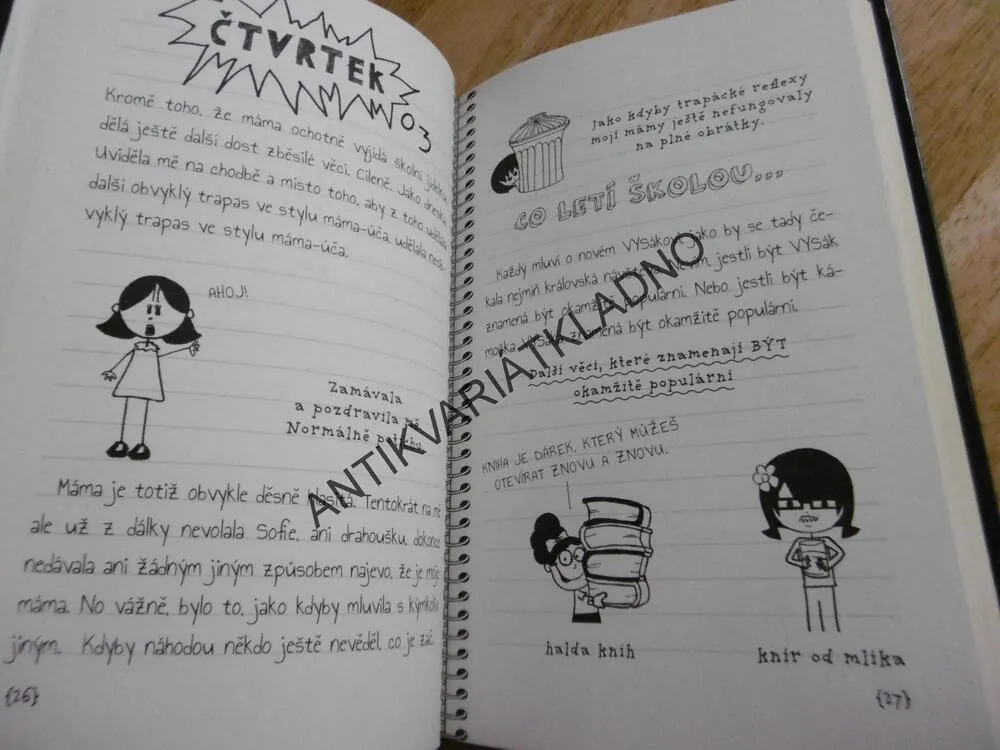 ČTVRTEK
03
Kromě toho, že máma ochotně vyjídá školní
dělá ještě další dost zběsilé věci. Cíleně. Jako dneska.
Uviděla mě na chodbě a místo toho, aby z toho udělala
další obvyklý trapas ve stylu máma-úča, udělala neob-
vyklý trapas ve stylu máma-úča.
AHOJ!
Zamávala
a pozdravila
Normálně
Máma je totiž obvykle děsně hlasitá. Tentokrát na mě
ale už z dálky nevolala Sofie, ani drahoušku, dokonce
nedávala ani žádným jiným způsobem najevo, že je moje
máma. No vážně, bylo to, jako kdyby mluvila s kýmkoliv
jiným. Kdyby náhodou někdo ještě nevěděl, co je zač.
{26}
Jako kdyby trapácké reflexy
mojí mámy ještě nefungovaly
na plné obrátky.
CO LETÍ ŠKOLOU...
Každý mluví o novém VYSákovi, jako by se tady če-
kala nejmíň královská návštěva. Nevím, jestli být VYSák
znamená být okamžitě populární. Nebo jestli být ká-
moška VYSáka znamená být okamžitě populární.
Další věci, které znamenají BÝT
okamžitě populární
KNIHA JE DÁREK, KTERÝ MŮŽEŠ
OTEVÍRAT ZNOVU A ZNOVU.
halda knih
knír od mlíka
{27}
ANTIKVARIATKLADNO